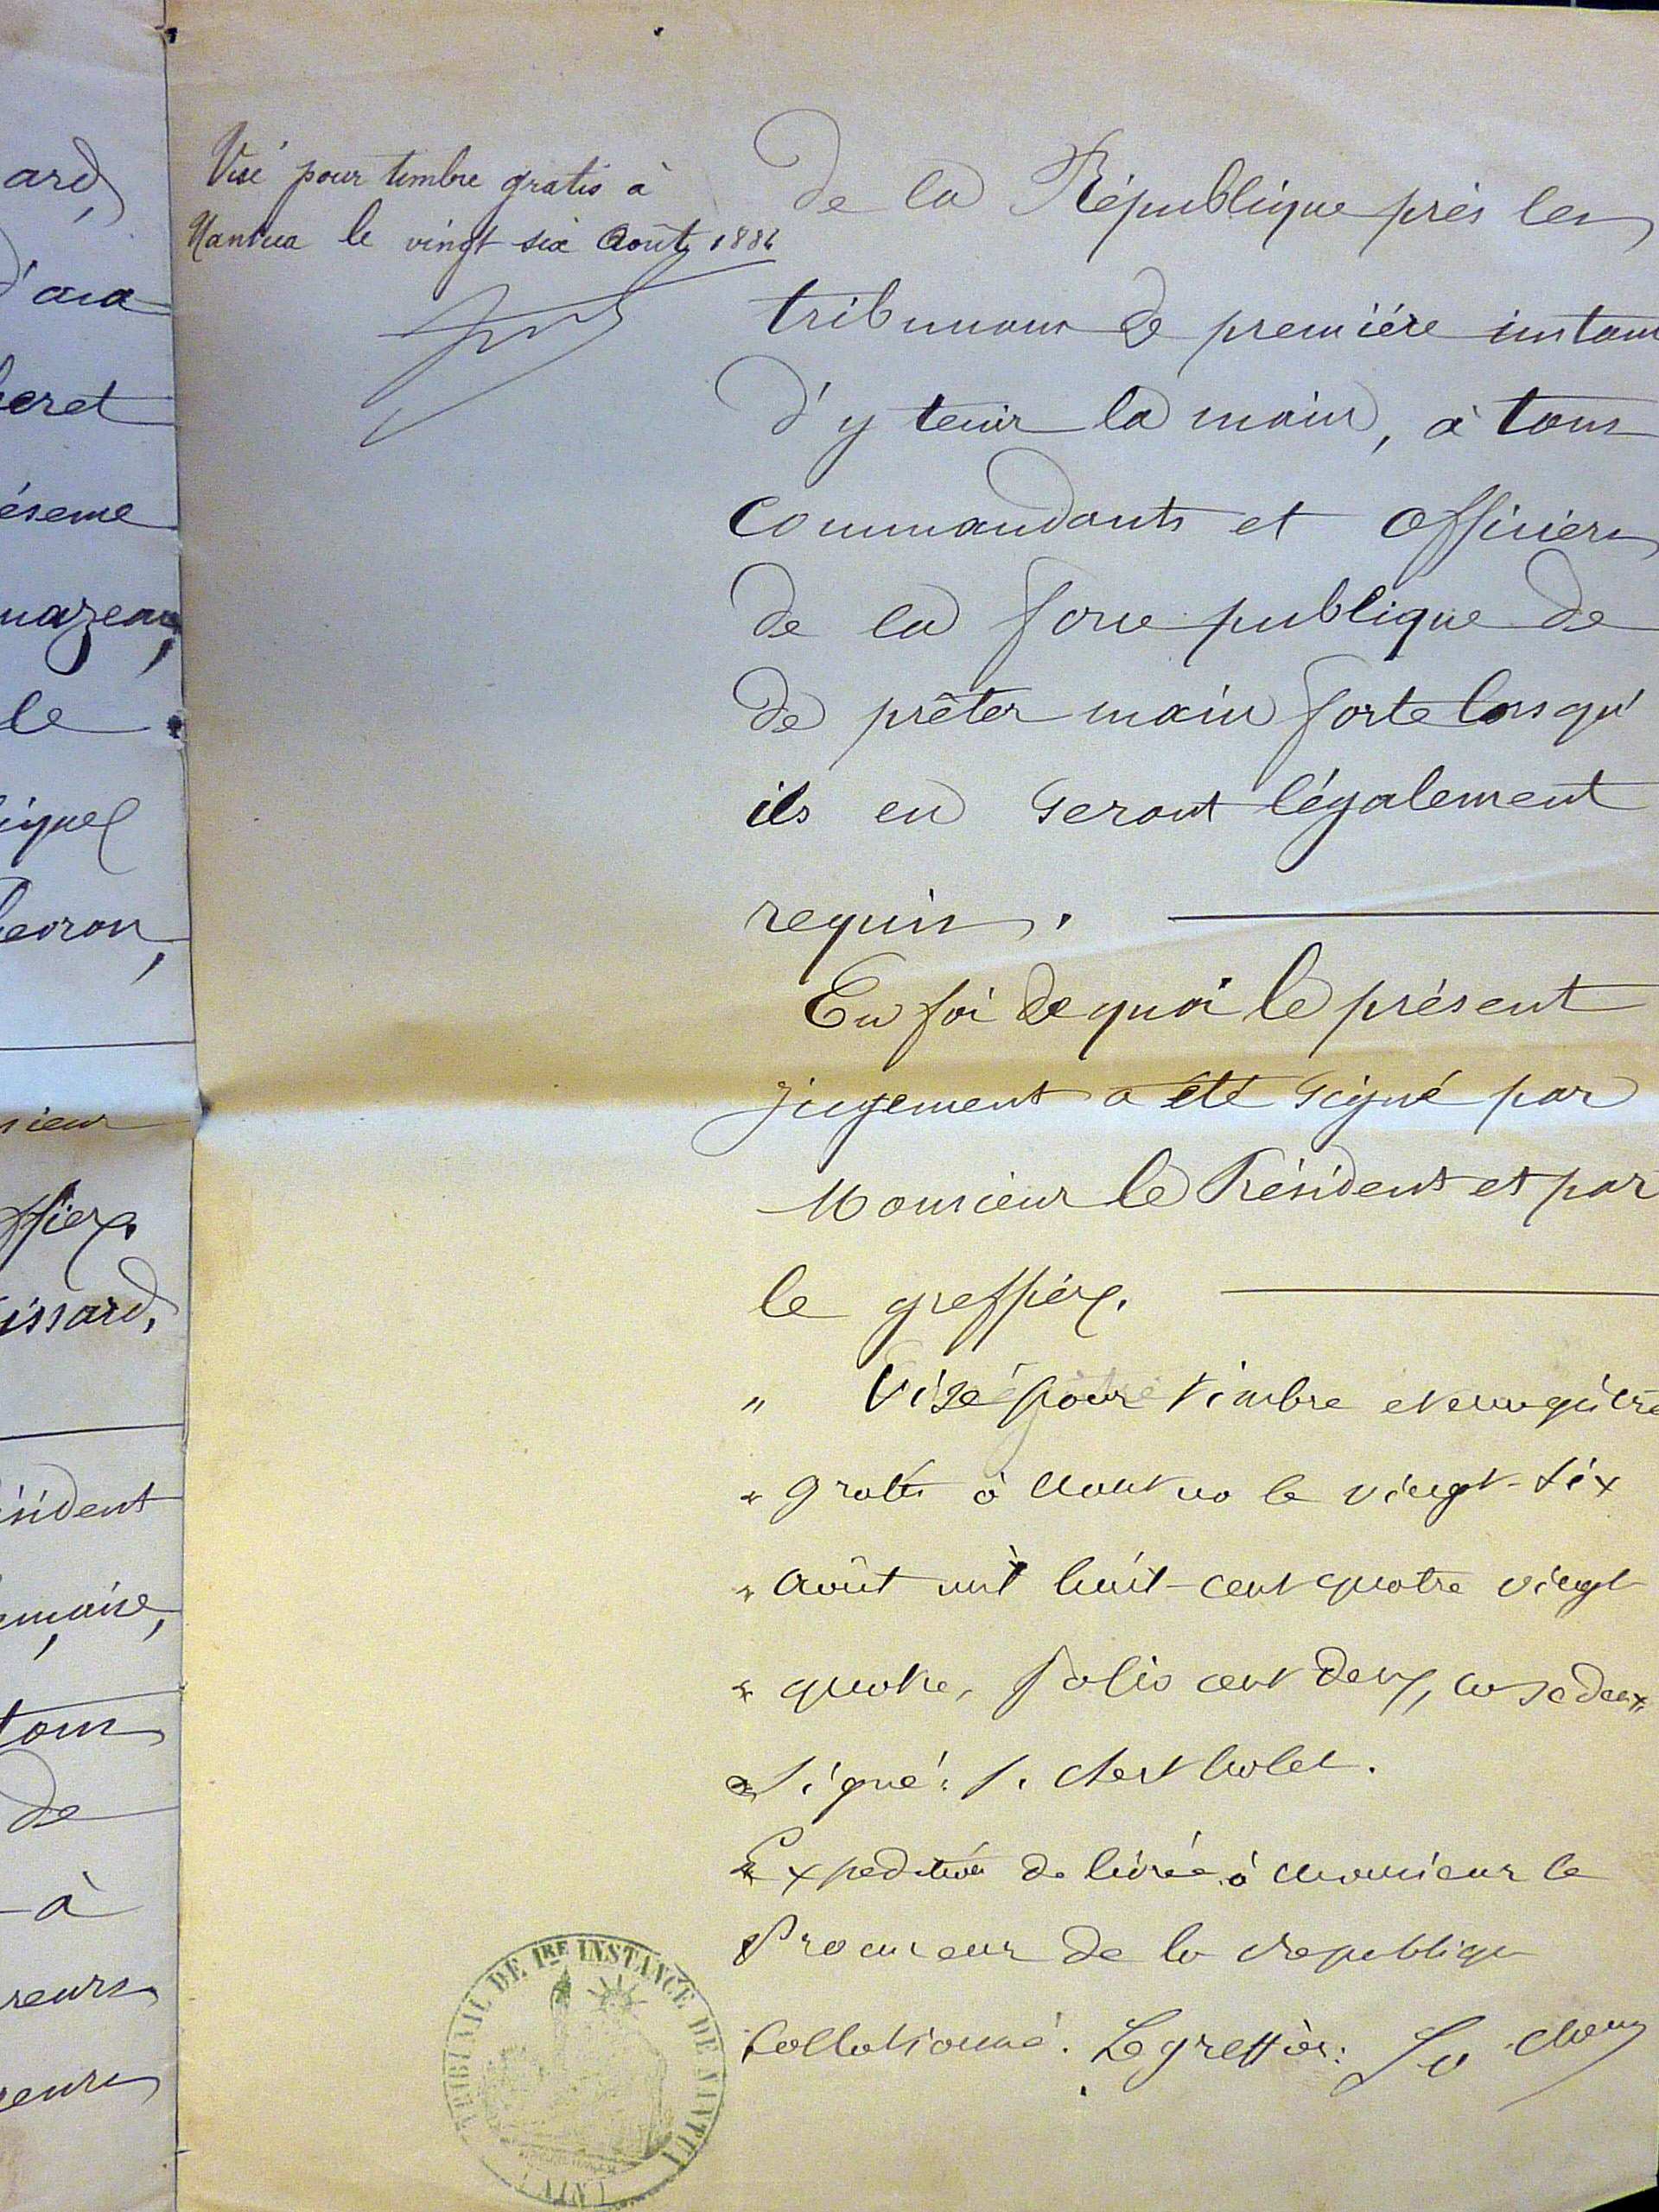 ard,
d'ava
heret
éseme
mazeau,
le
ique
hevron,
sieur
ffier.
issard,
ésident
maise,
tous
de
à
reurs
reurs
Visé pour timbre gratis à
Nantua le vingt six Août 1884
de la République près les
tribunaux de première instanc
d'y tenir la main, à tous
commandants et officiers
de la force publique de
de prêter main forte lorsqu'
ils en seront légalement
requis.
En foi de quoi le présent
jugement a été signé par
Monsieur le Président et par
le greffier.
" Visé pour timbre et enregistré
" gratis à Nantua le vingt-six
" août mil huit-cent quatre vingt
" quatre, folio cent deux, case deux
" signé:
" Expedition delivrée à Monsieur le
Procureur de la republique
Collationné. Le greffier:
TRIBUNAL DE 1RE INSTANCE DE NANTUA
(AIN)